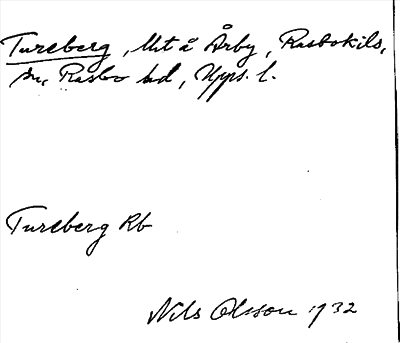 Tureberg, Urt å Årby, Rasbokils,
sn, Rasbo hd, Upps. l.
Tureberg Rb
Nils Olsson 1932